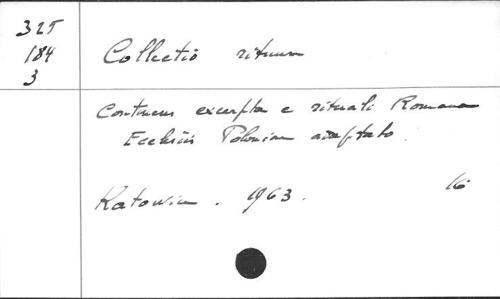 325
184
3
Collectio rituum
Continens excerpta e rituali Romano
Ecclesiis Poloniae adaptato.
Katowice. 1963.
16